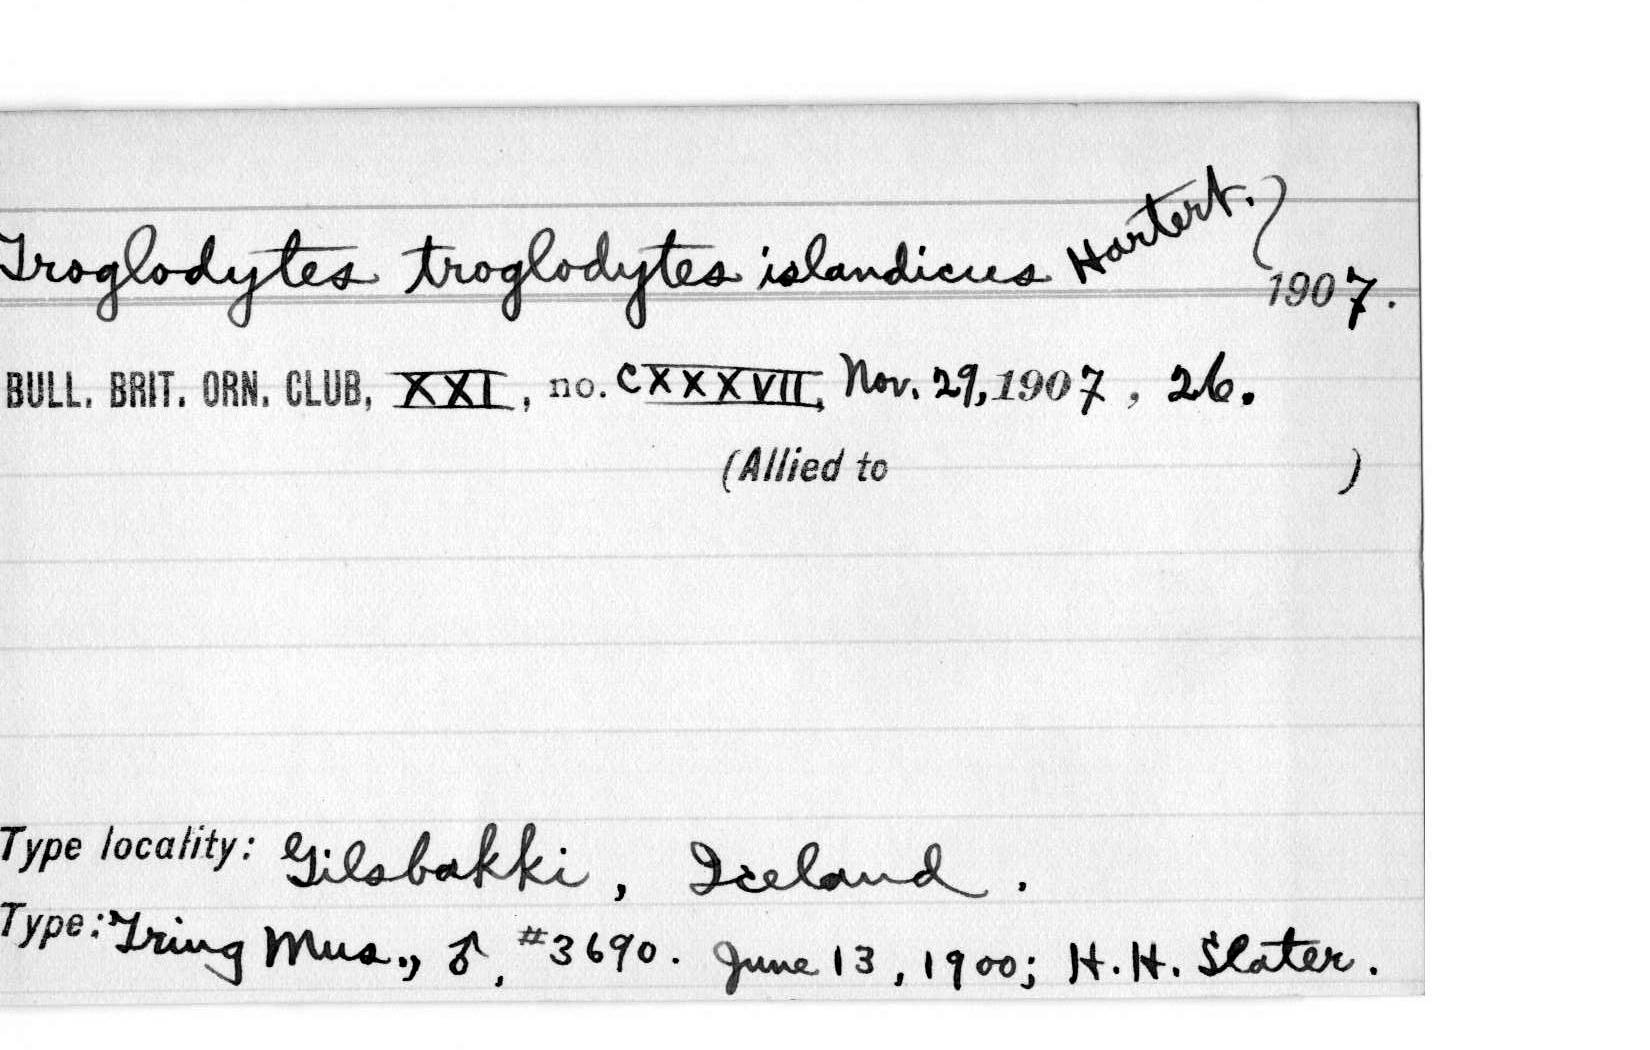 Troglodytes troglodytes islandicus Hartert. 1907.
BULL. BRIT. ORN. CLUB, XXI, no. CXXXVII, Nov. 29, 1907, 26.
(Allied to )
Type locality: Gilsbakki, Iceland.
Type: Tring Mus., ♂, #3690. June 13, 1900; H. H. Slater.